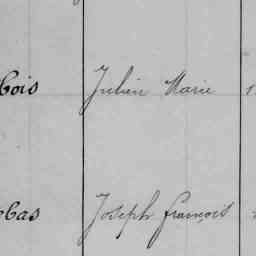 bois Julien Marie
bas Joseph François